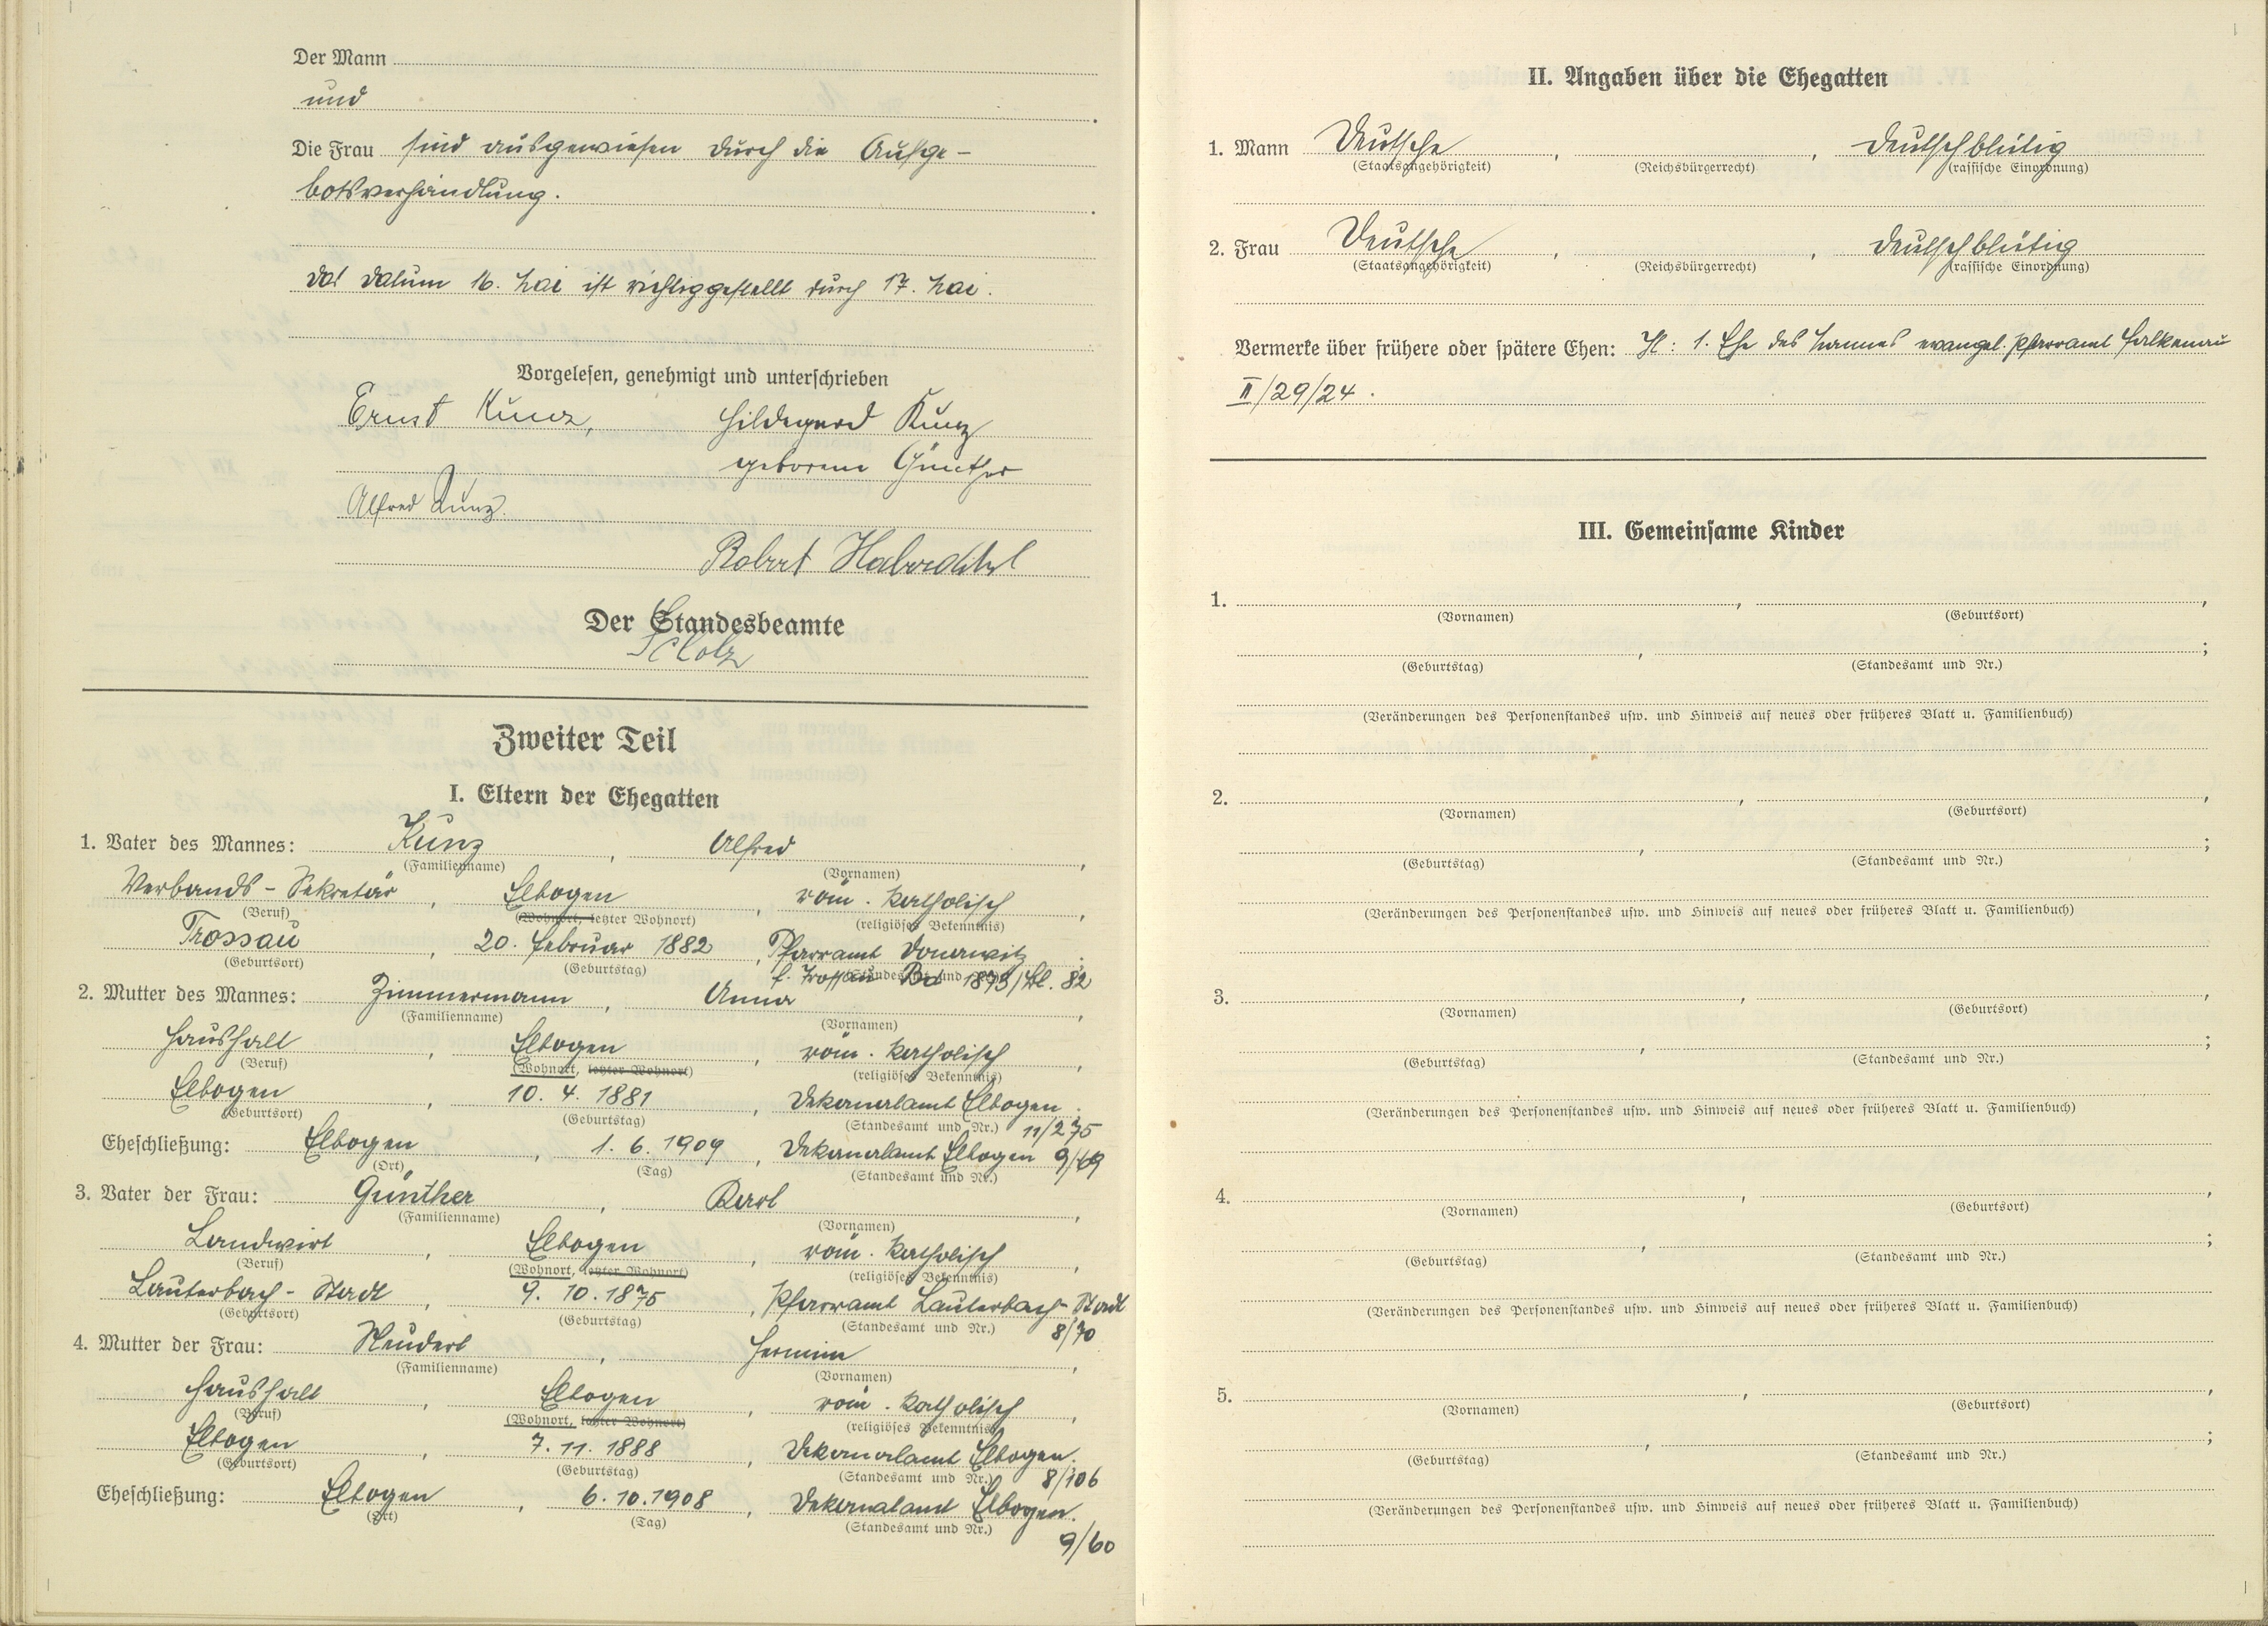 Der Mann
und
Die Frau sind ausgewiesen durch die Aufge-
botsverhandlung.
Das Datum 16. Mai ist richtiggestellt durch 17. Mai.
Vorgelesen, genehmigt und unterschrieben
Ernst Kunz, Hildegard Kunz
geborene Günther
Alfred Kunz.
Robert Haberditzl
Der Standesbeamte
Scholz
Zweiter Teil
I. Eltern der Ehegatten
1. Vater des Mannes: Kunz, Alfred,
(Familienname) (Vornamen)
Verbands-Sekretär, Elbogen, röm. katholisch,
(Beruf) (Wohnort, letzter Wohnort) (religiöses Bekenntnis)
Trossau, 20. Februar 1882, Pfarramt Donawitz;
(Geburtsort) (Geburtstag) (Standesamt und Nr.)
f. Trossau Bd 1873/Bl. 82
2. Mutter des Mannes: Zimmermann, Anna,
(Familienname) (Vornamen)
Haushalt, Elbogen, röm. katholisch,
(Beruf) (Wohnort, letzter Wohnort) (religiöses Bekenntnis)
Elbogen, 10. 4. 1881, Dekanalamt Elbogen.
(Geburtsort) (Geburtstag) (Standesamt und Nr.) 11/275
Eheschließung: Elbogen, 1. 6. 1909, Dekanalamt Elbogen 9/69
(Ort) (Tag) (Standesamt und Nr.)
3. Vater der Frau: Günther, Karl,
(Familienname) (Vornamen)
Landwirt, Elbogen, röm. katholisch,
(Beruf) (Wohnort, letzter Wohnort) (religiöses Bekenntnis)
Lauterbach-Stadt, 9. 10. 1875, Pfarramt Lauterbach-Stadt
(Geburtsort) (Geburtstag) (Standesamt und Nr.) 8/70
4. Mutter der Frau: Steudert, Hermine,
(Familienname) (Vornamen)
Haushalt, Elbogen, röm. katholisch,
(Beruf) (Wohnort, letzter Wohnort) (religiöses Bekenntnis)
Elbogen, 7. 11. 1888, Dekanalamt Elbogen.
(Geburtsort) (Geburtstag) (Standesamt und Nr.) 8/106
Eheschließung: Elbogen, 6. 10. 1908, Dekanalamt Elbogen.
(Ort) (Tag) (Standesamt und Nr.)
9/60
II. Angaben über die Ehegatten
1. Mann Deutsche, , deutschblütig
(Staatsangehörigkeit) (Reichsbürgerrecht) (rassische Einordnung)
2. Frau Deutsche, , deutschblütig
(Staatsangehörigkeit) (Reichsbürgerrecht) (rassische Einordnung)
Vermerke über frühere oder spätere Ehen: H: 1. Ehe des Mannes evangel. Pfarramt Falkenau
II/29/24.
III. Gemeinsame Kinder
1. , ,
(Vornamen) (Geburtsort)
, ;
(Geburtstag) (Standesamt und Nr.)
(Veränderungen des Personenstandes usw. und Hinweis auf neues oder früheres Blatt u. Familienbuch)
2. , ,
(Vornamen) (Geburtsort)
, ;
(Geburtstag) (Standesamt und Nr.)
(Veränderungen des Personenstandes usw. und Hinweis auf neues oder früheres Blatt u. Familienbuch)
3. , ,
(Vornamen) (Geburtsort)
, ;
(Geburtstag) (Standesamt und Nr.)
(Veränderungen des Personenstandes usw. und Hinweis auf neues oder früheres Blatt u. Familienbuch)
4. , ,
(Vornamen) (Geburtsort)
, ;
(Geburtstag) (Standesamt und Nr.)
(Veränderungen des Personenstandes usw. und Hinweis auf neues oder früheres Blatt u. Familienbuch)
5. , ,
(Vornamen) (Geburtsort)
, ;
(Geburtstag) (Standesamt und Nr.)
(Veränderungen des Personenstandes usw. und Hinweis auf neues oder früheres Blatt u. Familienbuch)